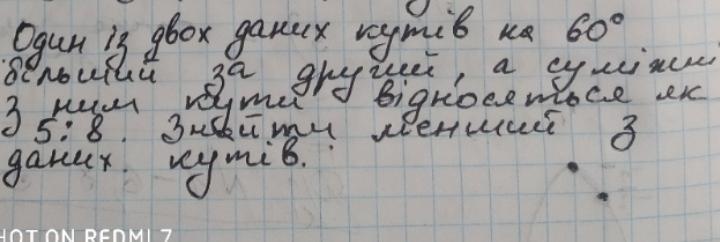 Один із двох даних кутів на 60°
більший за другий, а суміжні
з ним кути відносяться як
5:8. Знайти менший з
даних кутів.
SHOT ON REDMI 7